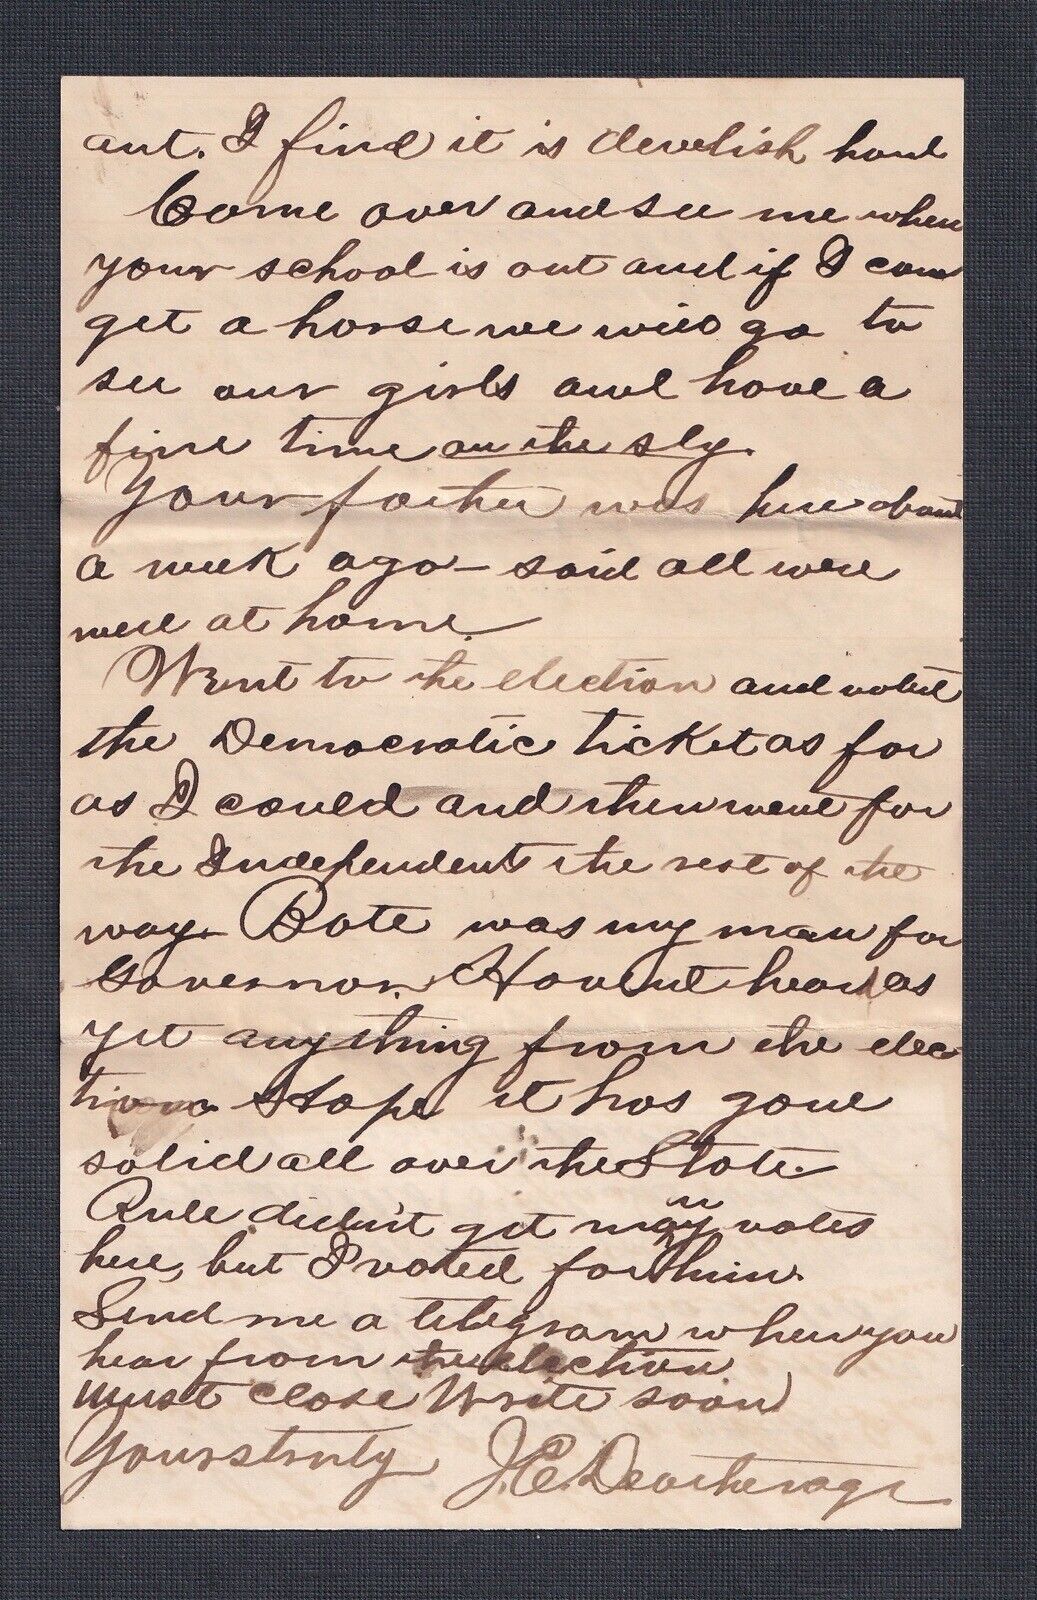 out. I find it is develish hard
Come over and see me when
your school is out and if I can
get a horse we will go to
see our girls and have a
fine time on the sly.
Your father was here about
a week ago – said all were
well at home.
Went to the election and voted
the Democratic ticket as far
as I could and then went for
the Independents the rest of the
way. Bate was my man for
Governor. Havent heard as
yet anything from the elec
tion Hope it has gone
solid all over the State.
Rule didn't get many votes
here, but I voted for him.
Send me a telegram when you
hear from the election
must close Write soon
Yours truly J.C. Deatherage